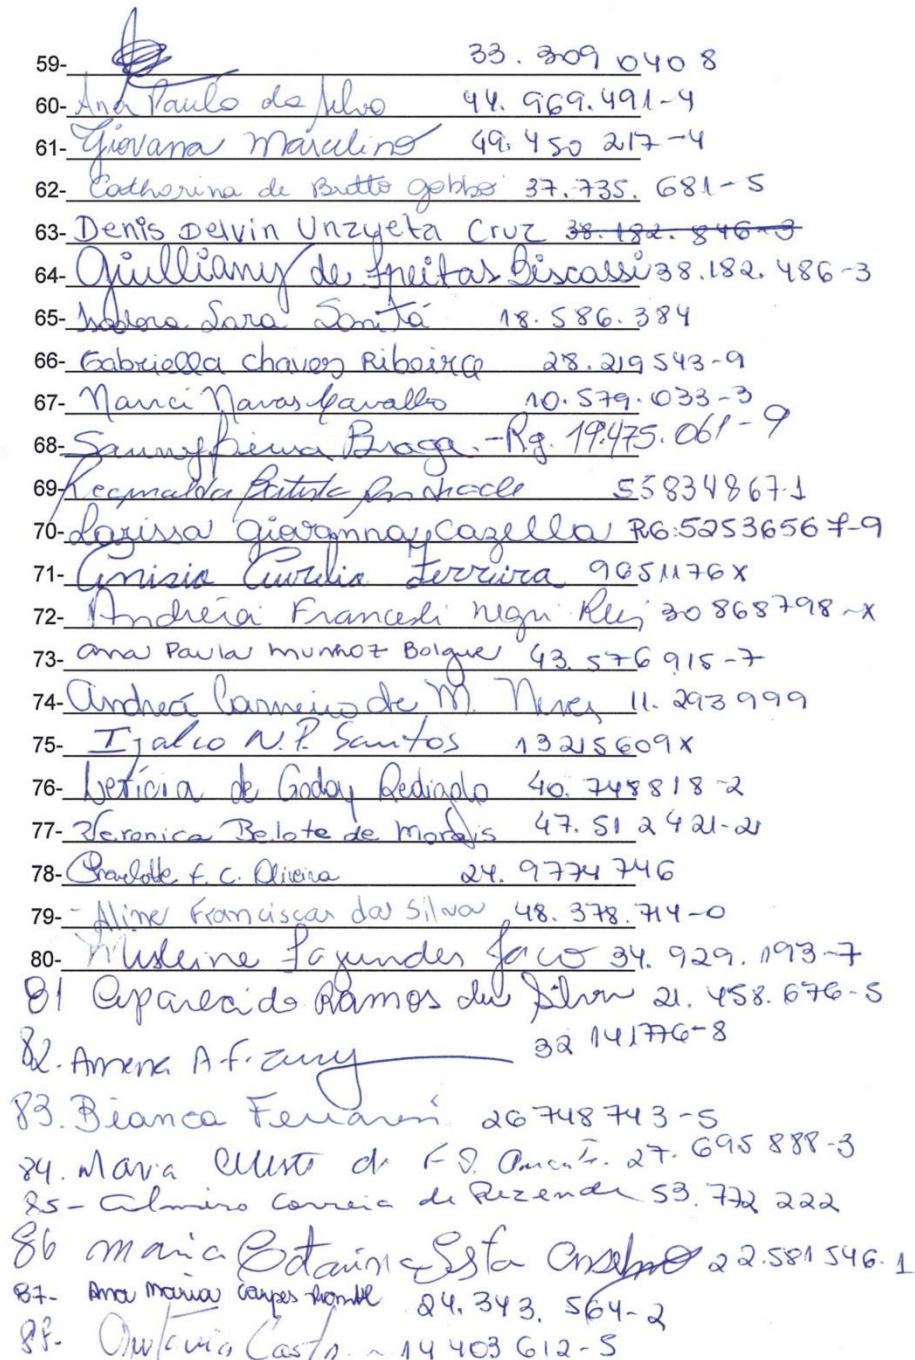 59- 33.309 040 8
60- Ana Paula da Silva 44.969.491-4
61- Giovana Marcelino 49.450 217-4
62- Catharina de Britto Gobbo 37.735.681-5
63- Denis Delvin Unzueta Cruz 38.182.846-3
64- Giulliany de Freitas Biscassi 38.182.486-3
65- Isadora Sara Sanitá 18.586.384
66- Gabriella Chaves Ribeiro 28.219543-9
67- Nanci Navas Carvalho 10.579.033-3
68- Braga - Rg. 19.475.061-9
69- Batista Andrade 55834867-1
70- Larissa Giovanna Cazella RG:52536567-9
71- Anisia Aurelia Ferreira 9051176X
72- Andréia Negri 30868798-X
73- Ana Paula Munhoz 43.576915-7
74- Andreá Carneiro de M. Neves 11.293999
75- Izalco N.P. Santos 13215609X
76- Letícia de Godoy 40.748818-2
77- Veronica Belote de Morais 47.512421-2
78- Charlotte F. C. Oliveira 24.9774746
79- Aline Francisca da Silva 48.378.714-0
80- Misleine Fagundes Jaco 34.929.193-7
81 Aparecida Ramos da Silva 21.458.676-5
82. A f. 32 141776-8
83. Bianca Ferraresi 26748743-5
84. Maria 27.695888-3
85- Correia de Rezende 53.772 222
86 Maria Anselmo 22.581546.1
87- Ana Maria 24.343.564-2
88- 14403612-5